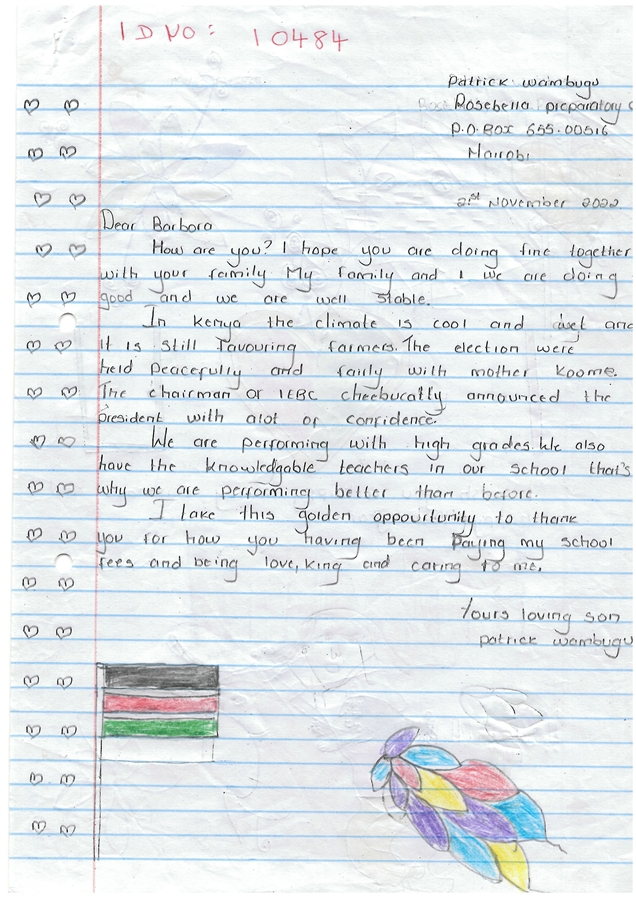 ID NO: 10484
Patrick Wambugu
Rosebella preparatory
P.O. BOX 655.00516
Nairobi
2nd November 2022
Dear Barbara
How are you? I hope you are doing fine together
with your family My family and I we are doing
good and we are well stable.
In Kenya the climate is cool and wet and
it is still favouring farmers. The election were
held peacefully and fairly with mother Koome.
The chairman of IEBC announced the
president with alot of confidence.
We are performing with high grades. We also
have the knowledgable teachers in our school that's
why we are performing better than before.
I take this golden oppourtunity to thank
you for how you having been paying my school
fees and being love, king and caring to me.
Yours loving son
patrick wambugu